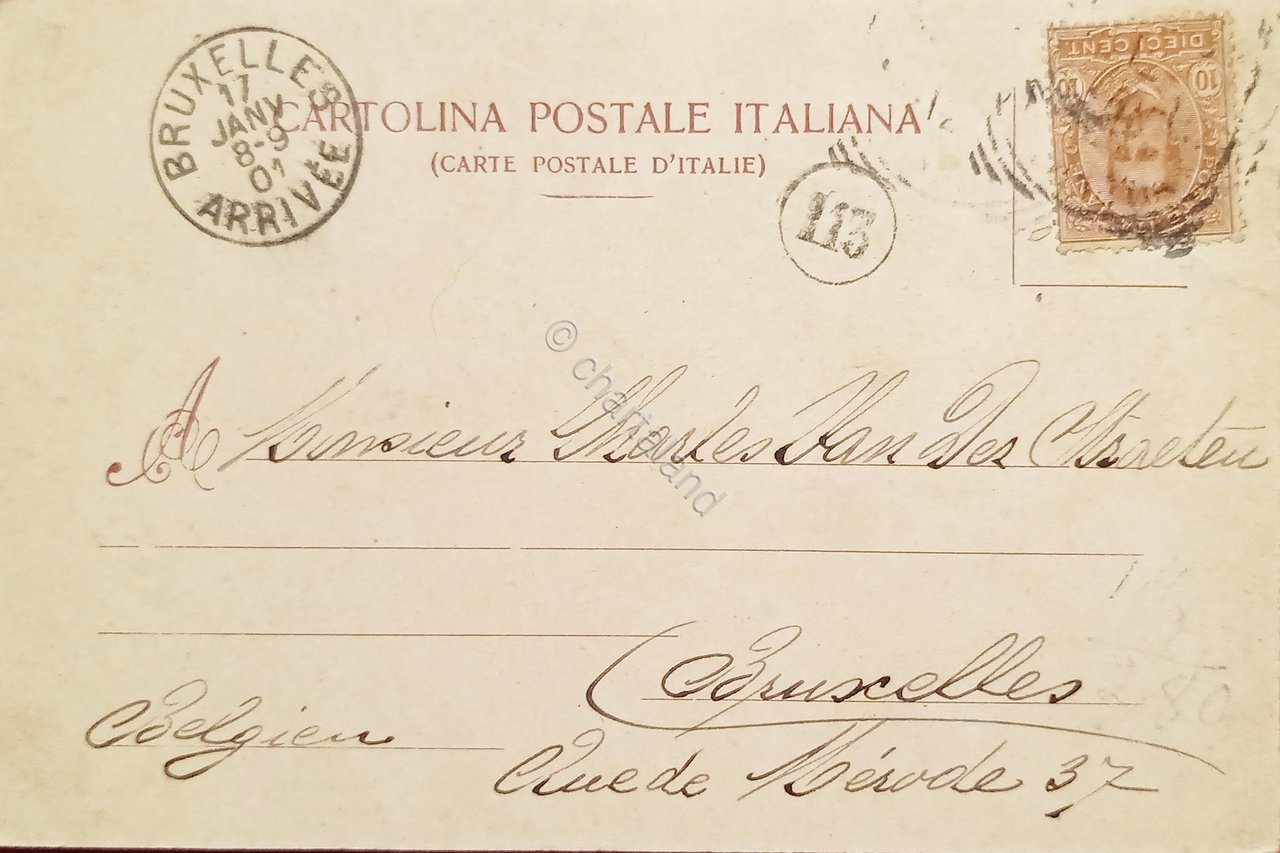 BRUXELLES
17
JANV
8-9
01
ARRIVÉE
CARTOLINA POSTALE ITALIANA
(CARTE POSTALE D'ITALIE)
113
DIECI CENT
10 10
© chartaland
A Monsieur Charles Van Der
Bruxelles
Belgien
Rue de Mérode 37